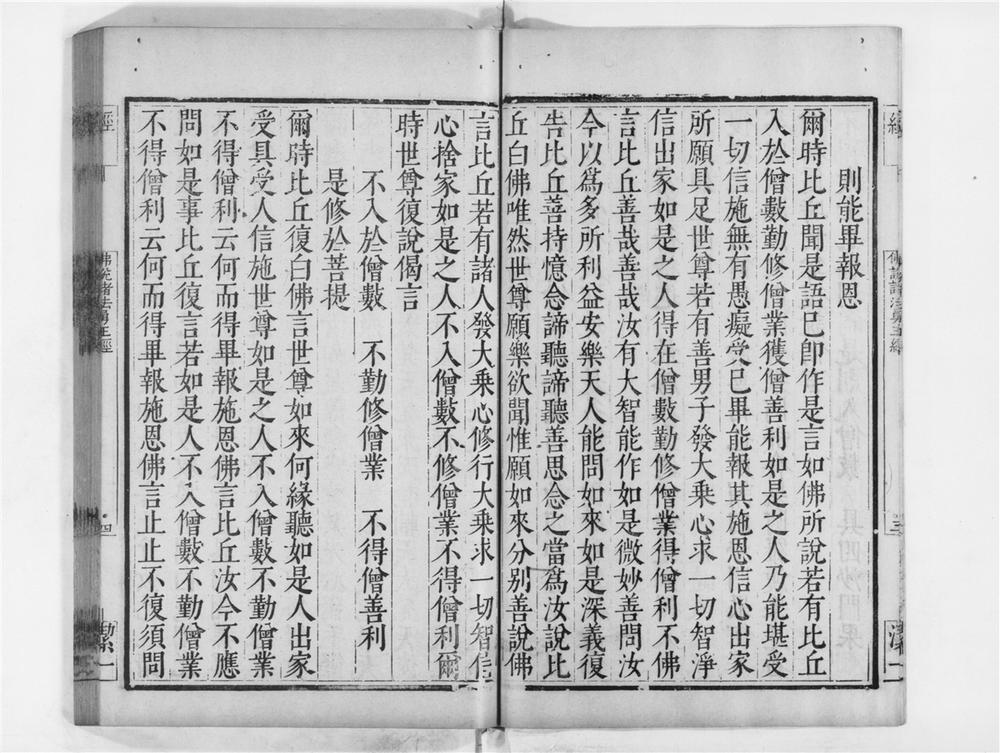 則能畢報恩
爾時比丘聞是語已卽作是言如佛所說若有比丘
入於僧數勤修僧業獲僧善利如是之人乃能堪受
一切信施無有愚癡受已畢能報其施恩信心出家
所願具足世尊若有善男子發大乘心求一切智淨
信出家如是之人得在僧數勤修僧業得僧利不佛
言比丘善哉善哉汝有大智能作如是微妙善問汝
今以爲多所利益安樂天人能問如來如是深義復
告比丘善持憶念諦聽諦聽善思念之當爲汝說比
丘白佛唯然世尊願樂欲聞惟願如來分別善說佛
言比丘若有諸人發大乘心修行大乘求一切智信
心捨家如是之人不入僧數不修僧業不得僧利爾
時世尊復說偈言
不入於僧數　不勤修僧業　不得僧善利
是修於菩提
爾時比丘復白佛言世尊如來何緣聽如是人出家
受具受人信施世尊如是之人不入僧數不勤僧業
不得僧利云何而得畢報施恩佛言比丘汝今不應
問如是事比丘復言若如是人不入僧數不勤僧業
不得僧利云何而得畢報施恩佛言止止不復須問
經
佛說諸法勇王經
四
潔一